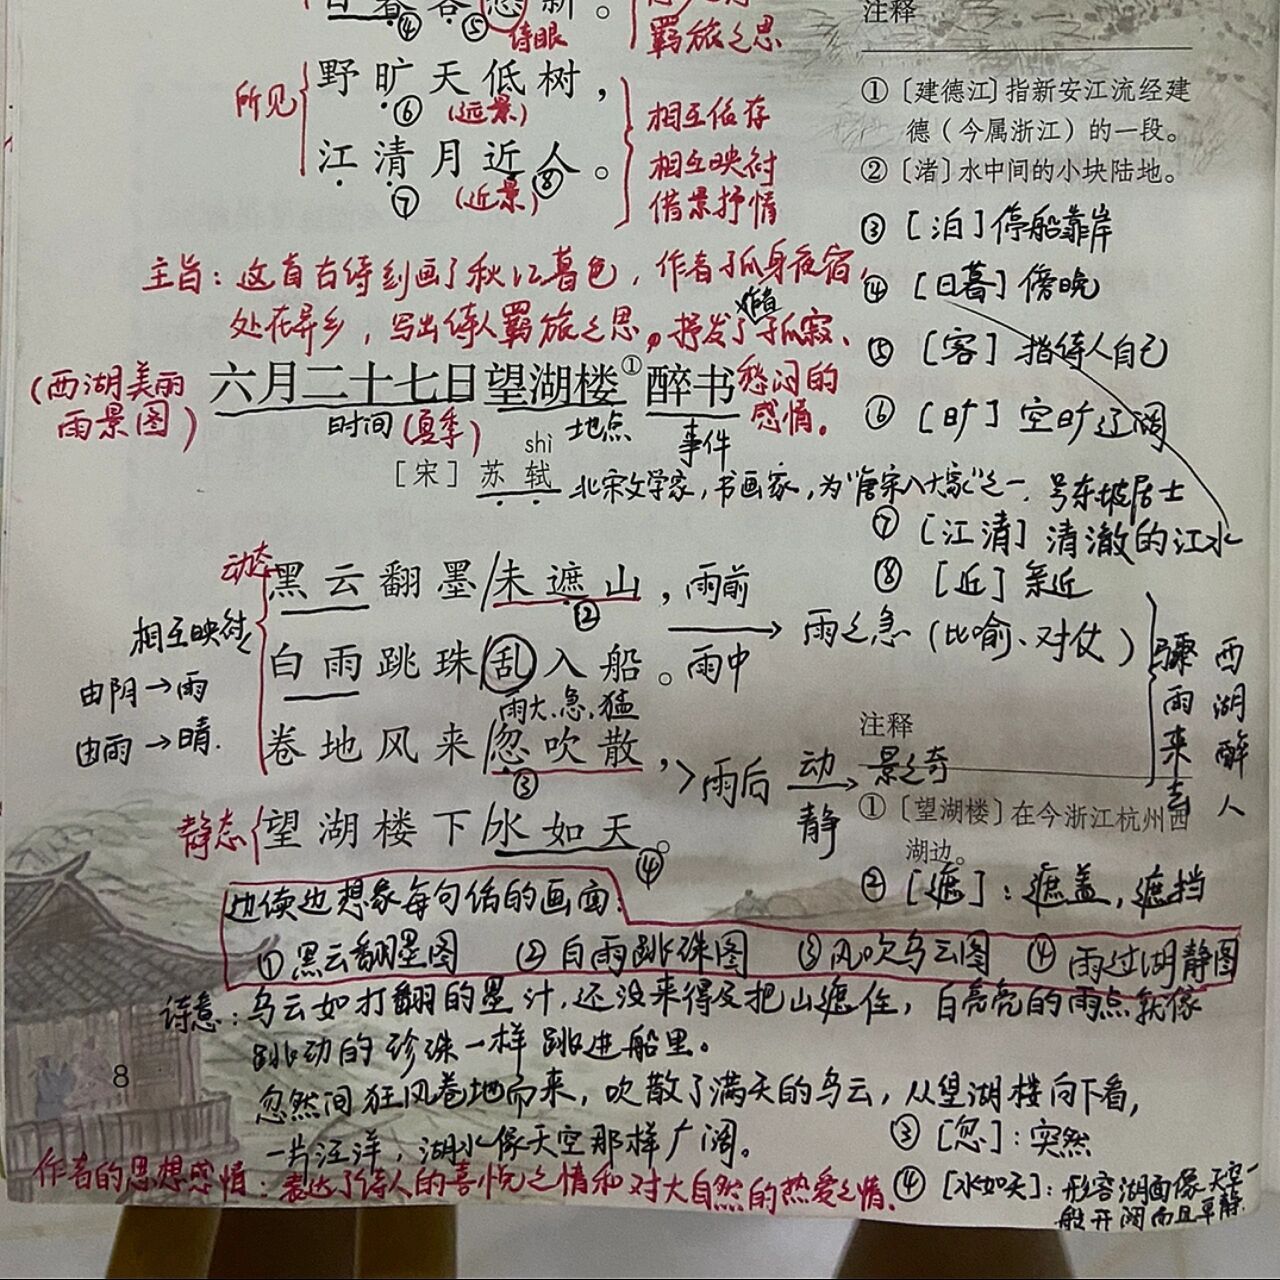 ④ ⑤ 诗眼
羁旅之思
注释
所见
野旷天低树，
⑥ (远景)
江清月近人。
⑦ (近景) ⑧
相互依存
相互映衬
借景抒情
① [建德江] 指新安江流经建
德（今属浙江）的一段。
② [渚] 水中间的小块陆地。
③ [泊] 停船靠岸
④ [日暮] 傍晚
⑤ [客] 指诗人自己
⑥ [旷] 空旷辽阔
⑦ [江清] 清澈的江水
⑧ [近] 亲近
主旨：这首古诗刻画了秋江暮色，作者孤身夜宿，
处在异乡，写出诗人羁旅之思，抒发了作者孤寂、
愁闷的
感情。
(西湖美丽
雨景图)
六月二十七日望湖楼①醉书
时间(夏季) 地点 事件
shì
[宋] 苏轼 北宋文学家，书画家，为"唐宋八大家"之一，号东坡居士
动态
黑云翻墨/未遮山，雨前
②
相互映衬
白雨跳珠/乱入船。雨中
雨大、急、猛
雨之急（比喻、对仗）
由阴→雨
由雨→晴.
卷地风来/忽吹散，
③
静态
望湖楼下/水如天。
④
雨后 动 静 景之奇
骤雨来去
西湖醉人
注释
① [望湖楼] 在今浙江杭州西
湖边。
② [遮]：遮盖，遮挡
边读边想象每句话的画面：
①黑云翻墨图 ②白雨跳珠图 ③风吹乌云图 ④雨过湖静图
诗意：乌云如打翻的墨汁，还没来得及把山遮住，白亮亮的雨点就像
跳动的珍珠一样跳进船里。
忽然间狂风卷地而来，吹散了满天的乌云，从望湖楼向下看，
一片汪洋，湖水像天空那样广阔。
③ [忽]：突然
作者的思想感情：表达了诗人的喜悦之情和对大自然的热爱之情。
④ [水如天]：形容湖面像天空一
般开阔而且平静.
8